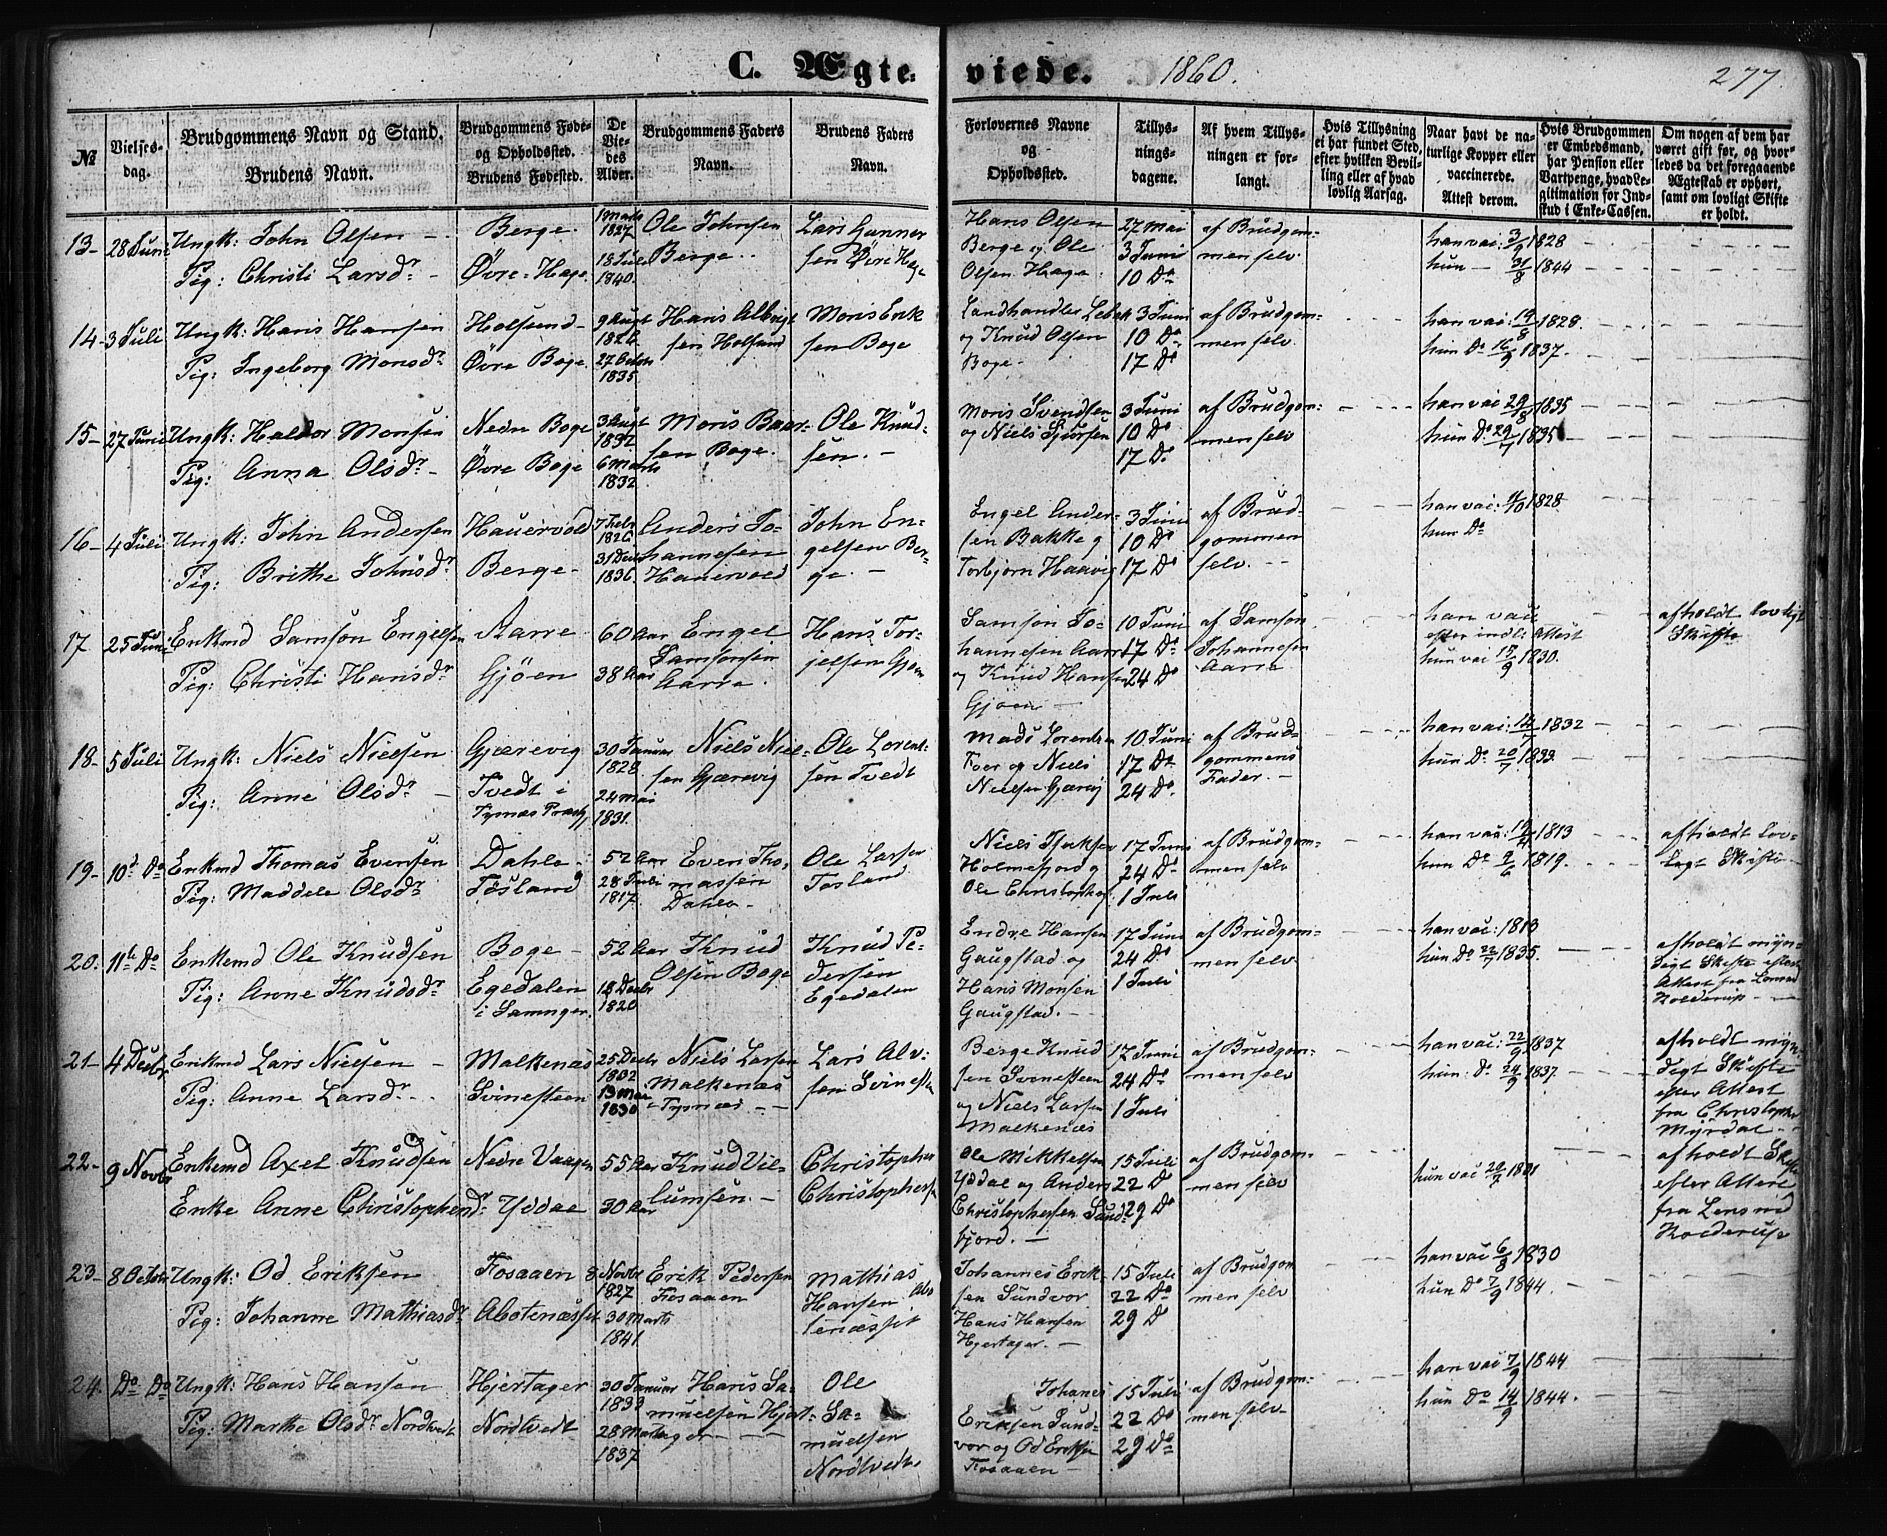 C. Ægte- viede. 1860. 277.
№ | Vielses-dag. | Brudgommens Navn og Stand. Brudens Navn. | Brudgommens Føde- og Opholdssted. Brudens Fødested. | De Viedes Alder. | Brudgommens Faders Navn. | Brudens Faders Navn. | Forlovernes Navne og Opholdssted. | Tillysningsdagene. | Af hvem Tillysningen er forlangt. | Hvis Tillysning ei har fundet Sted, efter hvilken Bevilling eller af hvad lovlig Aarsag. | Naar havt de naturlige Kopper eller vaccinerede. Attest derom. | Hvis Brudgommen er Embedsmand, har Pension eller Vartpenge, hvad Legitimation for Indskud i Enke-Cassen. | Om nogen af dem har været gift før, og hvorledes da det foregaaende Ægteskab er ophørt, samt om lovligt Skifte er holdt.
13- | 28 Juni | Ungk: John Olsen - | Berge | 1 Marts 1827 | Ole Johnsen Berge | Lars Gunnarsen Øvre Hage | Hans Olsen Berge og Ole Olsen Hage | 27 Mai 3 Juni 10 Do | af Brudgommen selv | han vac: 3/9 1828
Pig: Christi Larsdr - | Øvre-Hage | 18 Juli 1840. | hun - 31/8 1844
14- | 3 Juli | Ungk: Hans Hansen | Holsund- | 9 Augt 1826 | Hans Albrigtsen Holsund | Mons Eriksen Boge | Landhandler Lebek og Knud Olsen Boge | 3 Juni 10 Do 17 Do | af Brudgommen selv | han vac: 19/8 1828.
Pig: Ingeborg Monsdr | Øvre Boge | 27 Octbr 1835 | hun Do 16/9 1837.
15- | 27 Juni | Ungk: Haldor Monsen | Nedre Boge | 3 Augt 1832 | Mons Baarsen Boge. | Ole Knudsen. - | Mons Svendsen og Niels Sjursen | 3 Juni 10 Do 17 Do | af Brudgommen selv | han vac 29/8 1835
Pig: Anna Olsdr - | Øvre Boge | 6 Marts 1832 | hun Do 29/7 1835
16- | 4 Juli | Ungk: John Andersen | Hauervold | 7 Febr 1826 | Anders Johannesen Hauervold | John Engelsen Berge. - | Engel Andersen Bakke og Torbjørn Haavig | 3 Juni 10 Do 17 Do | af Brudgommen selv. | han vac: 1828
Pig: Brithe Johnsdr | Berge - | 31 Decbr 1836 | hun Do
17 | 25 Juni | Enkemd Samson Engelsen | Aarre | 60 Aar | Engel Samsonsen Aarre. | Hans Torjelsen Gjøen | Samson Johannesen Aarre og Knud Hansen Gjøen - | 10 Juni 17 Do 24 Do | af Samson Johannesen Aarre | han vac efter indl: Attest | afholdt lovligt Skifte
Pig: Christi Hansdr | Gjøen | 38 Aar | hun vac 1830.
18- | 5 Juli | Ungk: Niels Nielsen | Gjærevig | 30 Januar 1828 | Niels Nielsen Gjærevig | Ole Lorentsen Tvedt | Mads Lorentsen Foer og Niels Nielsen Gjærevig | 10 Juni 17 Do 24 Do | af Brudgommens Fader. - | han vac: 1832
Pig: Anne Olsdr - | Tvedt i Tysnæs Præstg | 24 Mai 1831. | hun Do 20/7 1833.
19- | 10d Do | Enkmd Thomas Evensen | Dahle - | 52 Aar | Even Thomassen Dahle - | Ole Larsen Tosland | Niels Isaksen Holmefjord og Ole Christophersen | 17 Juni 24 Do 1 Juli | af Brudgommen selv | han vac: 1813 | afholdt lovligt Skifte
Pig: Maddele Olsdr | Tosland | 28 Juli 1817. | hun Do 2/6 1819.
20. | 11te Do | Enkemd Ole Knudsen | Boge - | 52 Aar | Knud Olsen Boge | Knud Pedersen Egedalen | Endre Hansen Gaugstad og Hans Monsen Gaugstad. - | 17 Juni 24 Do 1 Juli | af Brudgommen selv | han vac: 1813 | afholdt myndigt Skifte efter Attest fra Lensmd Kolderup
Pig: Anne Knudsdr | Egedalen i Samnger. | 18 Decbr 1820 | hun Do 22/7 1835.
21- | 4 Decbr | Enkmd Lars Nielsen - | Malkenæs | 25 Decbr 1802 | Niels Larsen Malkenæs Tysnæs | Lars Alvsen Svinesteen | Berge Knudsen Svinesteen og Niels Larsen Malkenæs | 17 Juni 24 Do 1 Juli | af Brudgommen selv | han vac: 22/9 1837 | afholdt myndigt Skifte efter Attest fra Christopher Myrdal -
Pig: Anne Larsdr - | Svinesteen | 19 Mai 1830 | hun: Do 24/9 1837
22- | 9 Novbr | Enkemd Axel Knudsen | Nedre Vaagen | 55 Aar | Knud Villumsen. - | Christopher Christophersen | Ole Mikkelsen Yddal og Anders Christophersen Sundfjord. - | 15 Juli 22 Do 29 Do | af Brudgommen selv | hun vac 20/7 1831 | afholdt Skifte efter Attest fra Lensmd Kolderup
Enke Anne Christophersdr | Yddal | 30 Aar
23- | 8 Octobr | Ungk: Od Eriksen | Fosaaen | 8 Novbr 1827 | Erik Pedersen Fosaaen | Mathias Hansen Alotenæsset | Johannes Eriksen Sundvor Hans Hansen Hjertager. - | 15 Juli 22 Do 29 Do | af Brudgommen selv | han vac 6/8 1830
Pig: Johanne Mathiasdr | Alotenæsset | 30 Marts 1841 | hun Do 7/9 1844.
24. | Do Do | Ungk: Hans Hansen | Hjertager | 30 Januar 1833 | Hans Samuelsen Hjertager - - - | Ole Samuelsen Nordtvedt | Johannes Eriksen Sundvor og Od Eriksen Fosaaen - | 15 Juli 22 Do 29 Do | af Brudgommen selv- | han vac 7/9 1844
Pig: Marthe Olsdr Nordtvedt | Nordtvedt | 28 Marts 1837 | hun Do 14/9 1844.